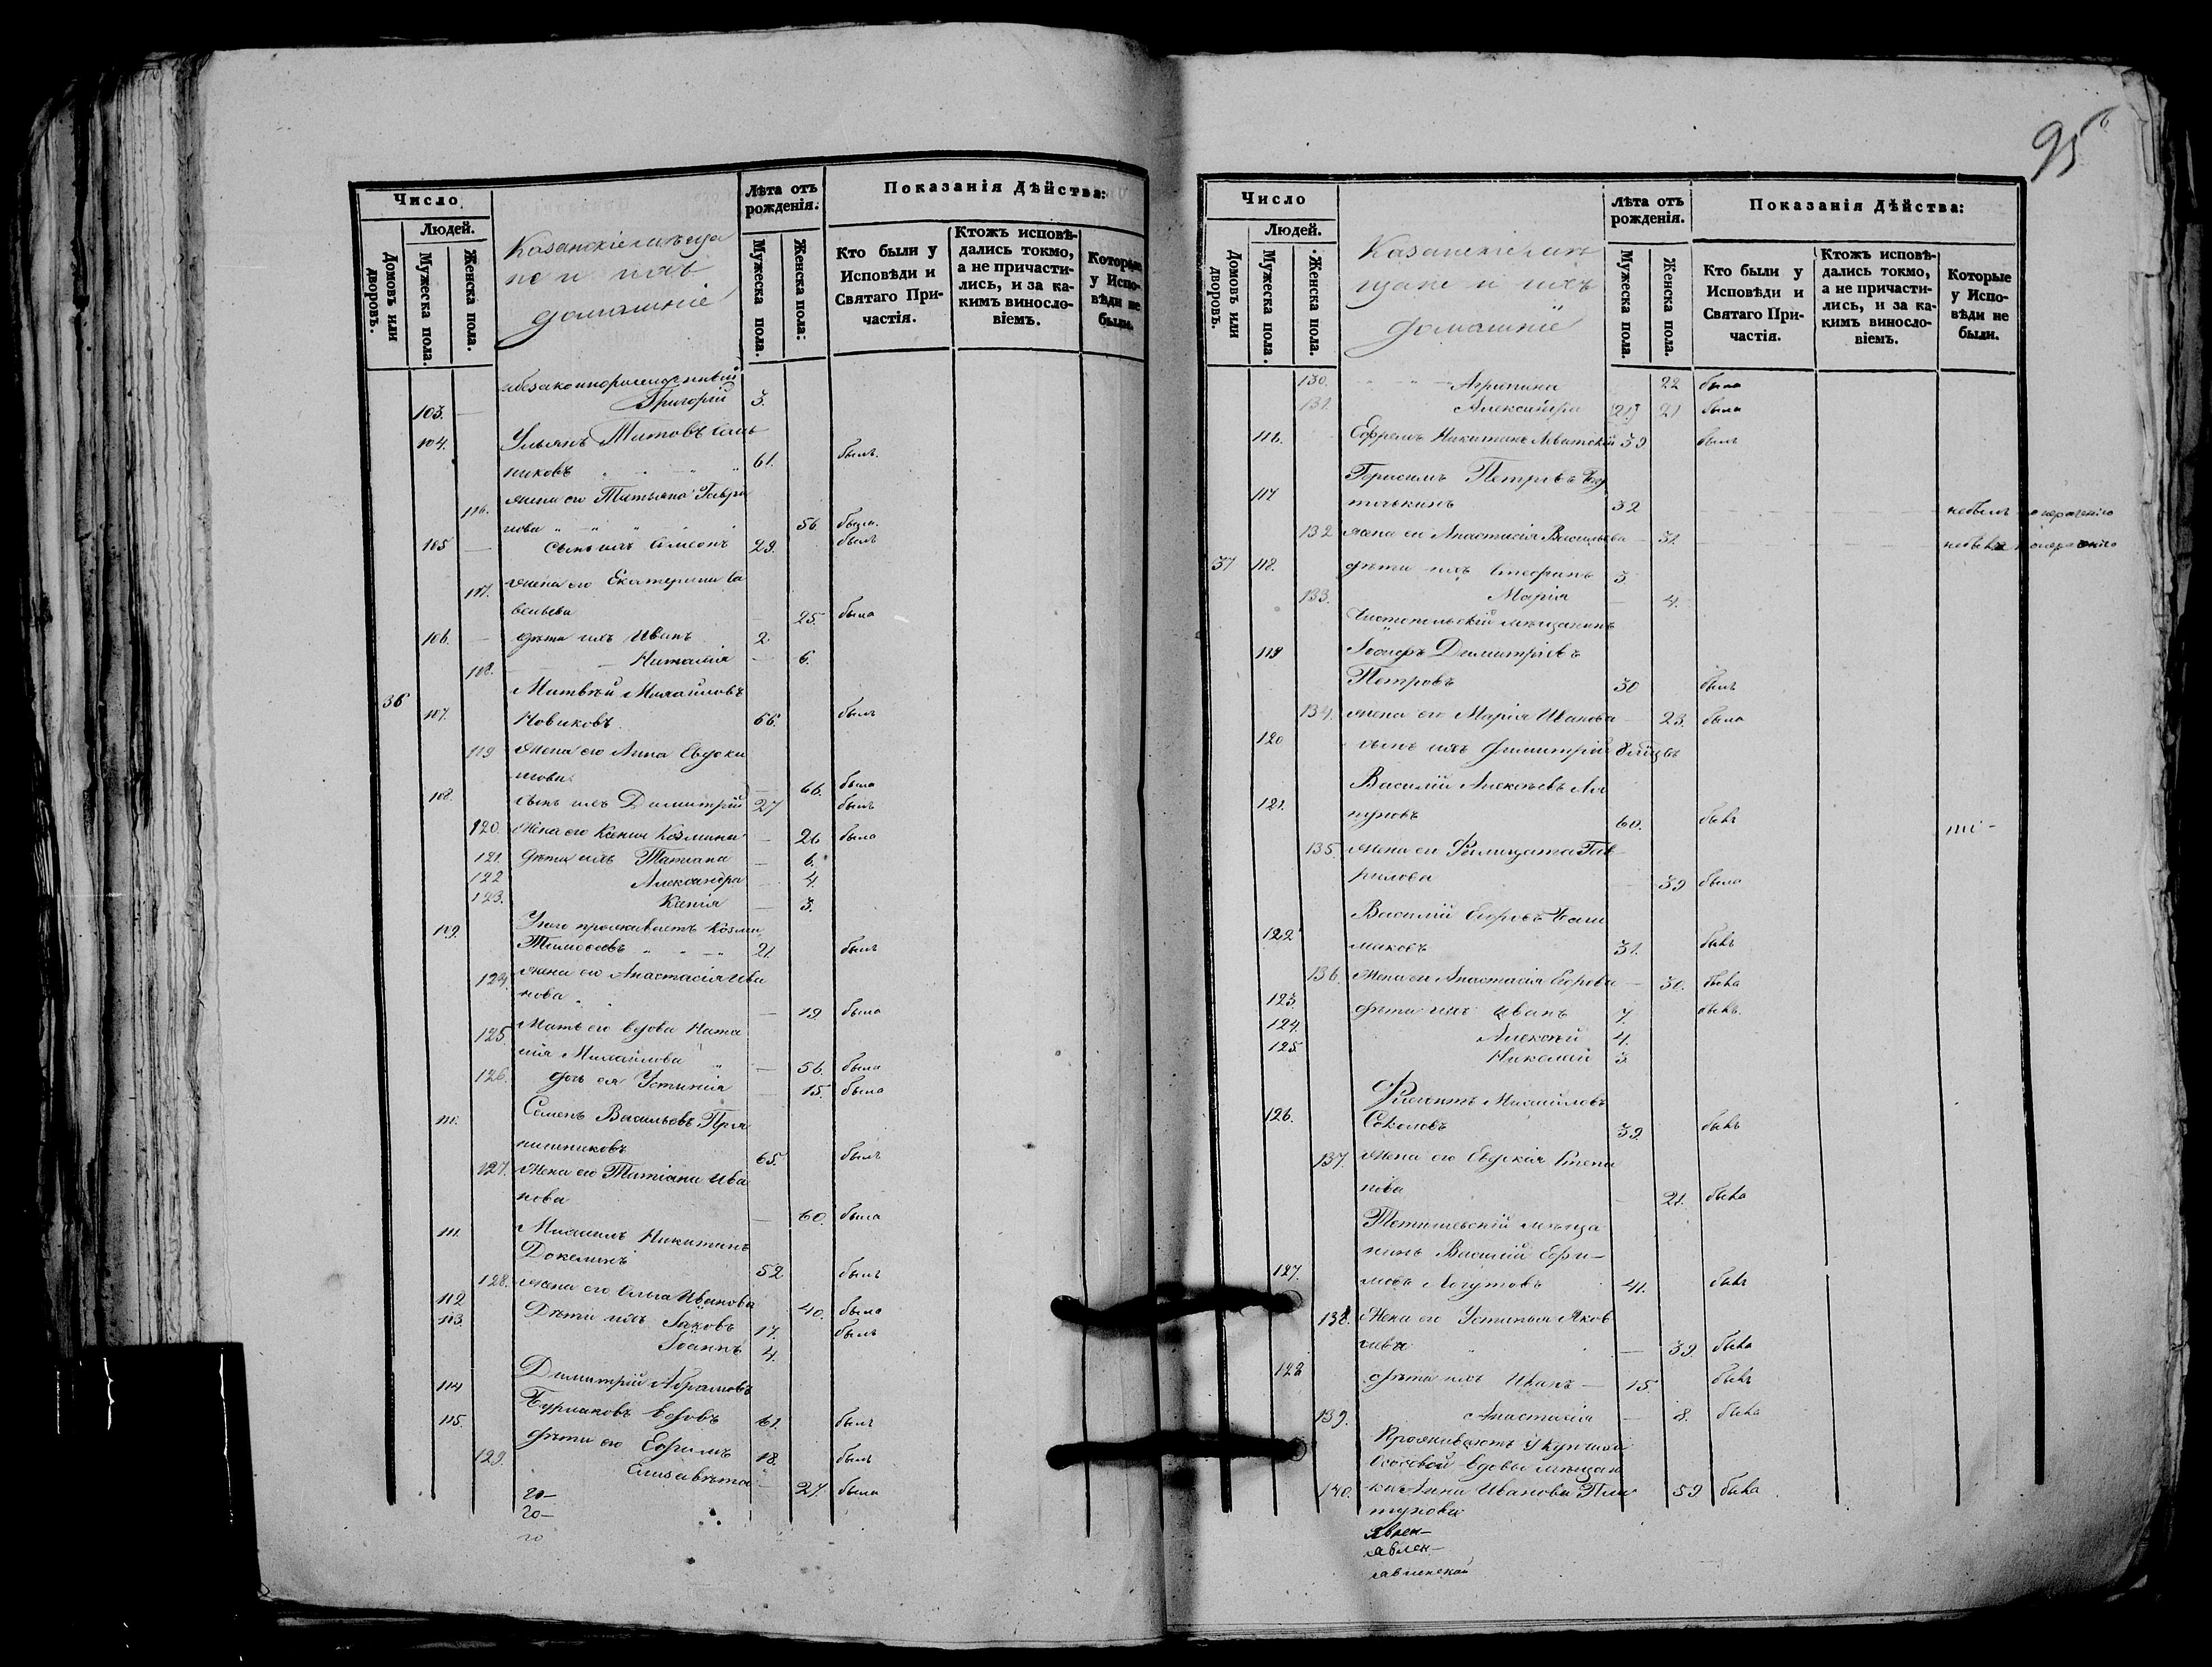 95
Число
Людей.
Домовъ или дворовъ.
Мужеска пола.
Женска пола.
Казанскіе мѣща
не и ихъ
домашніе
Лѣта отъ рожденія.
Мужеска пола.
Женска пола:
Показанія Дѣйства:
Кто были у Исповѣди и Святаго Причастія.
Ктожъ исповѣ-
дались токмо,
а не причасти-
лись, и за ка-
кимъ винosло-
віемъ.
Которые
у Испо-
вѣди не
были.
незаконнорожденный
103. — Григорій 3.
104. Ульянъ Титовъ
никовъ 61. былъ.
116. жена его Татьяна Гаври
лова 56. была.
105 — сынъ ихъ Симеонъ 29. былъ
117. жена его Екатерина Са
вельева 25. была
106. — дѣти ихъ Иванъ 2.
118. — Наталія — 6.
36 Матвѣй Михайловъ
107. Новиковъ 66. былъ
119 жена его Анна Евдоки
мова — 66. была
108. сынъ ихъ Димитрій 27 былъ
120. Жена его Ксенія Козмина — 26 была
121. Дѣти ихъ Татіана — 6.
122 Александра — 4.
123. Ксенія — 3.
109. У него проживаетъ Козма
Тимофеевъ 21. былъ
124. жена его Анастасія Ива
нова — 19 была
125. Мать его вдова Ната
лія Михайлова — 56. была
126. дочь ея Устинія — 15. была
110. Семенъ Васильевъ Пря
нишниковъ 65. былъ
127. Жена его Татіана Ива
нова — 60. была
111. Михаилъ Никитинъ
52 былъ
128. жена его Ольга Иванова 40. была
112 Дѣти ихъ Іаковъ 17. былъ
113. Іоаннъ 4.
114 Димитрій Абрамовъ
Бурлаковъ вдовъ 61. былъ
115. дѣти его Ефримъ 18. былъ
129. Елисавѣта — 27. была
го—
го—
го
Число
Людей.
Домовъ или дворовъ.
Мужеска пола.
Женска пола.
Казанскіе мѣ
щане и ихъ
домашніе
Лѣта отъ рожденія.
Мужеска пола.
Женска пола.
Показанія Дѣйства:
Кто были у Исповѣди и Святаго Причастія.
Ктожъ исповѣ-
дались токмо,
а не причасти-
лись, и за ка-
кимъ винosло-
віемъ.
Которые
у Испо-
вѣди не
были.
130. Агрипина 22 была
131. Александра 21 была
116. Ефремъ Никитинъ 39 былъ
Герасимъ Петровъ
117 32 небылъ
132 жена его Анастасія Васильева — 31.
37 118. дѣти ихъ Стефанъ 3
133. Марія — 4.
Чистопольскій мѣщанинъ
119 Іосифъ Димитріевъ
Петровъ 30 былъ
134. жена его Марія Иванова — 23. была
120 сынъ ихъ Димитрій
Василій Алексѣевъ
121. 60. былъ
135. жена его Гав
рилова — 39 была
Василій Егоровъ Баш
122 маковъ 31. былъ
136. жена его Анастасія Егорова — 30. была
123. дѣти ихъ Иванъ 7. былъ.
124. Алексѣй 4.
125. Николай 3
Михайловъ
126. Соколовъ 39. былъ
137. жена его Евдокія Степа
нова — 21. была
Тетюшевскій мѣща
нинъ Василій Ефи—
127. мовъ Логутовъ 41. былъ
138. Жена его Устинья Яков
лева — 39. была
128 дѣти ихъ Иванъ — 15. былъ
139. Анастасія — 8. была
Проживаютъ у купчихи
вдовы мѣщан
140. ка Анна Иванова 59 была
явлен—
явлен—
явленской